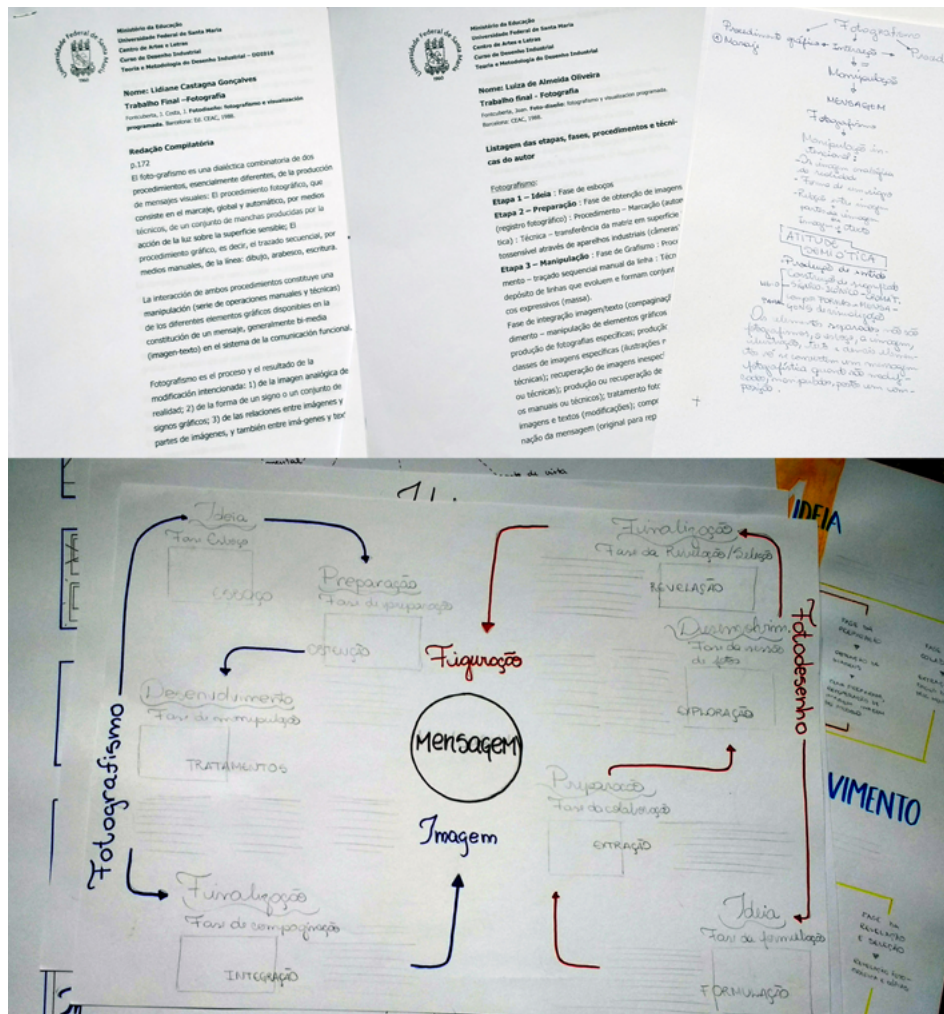 Universidade Federal de Santa Maria
1960
Ministério da Educação
Universidade Federal de Santa Maria
Centro de Artes e Letras
Curso de Desenho Industrial
Teoria e Metodologia do Desenho Industrial – DDI2016
Nome: Lidiane Castagna Gonçalves
Trabalho Final –Fotografia
Fontcuberta, J. Costa, J. Fotodiseño: fotografismo e visualización
programada. Barcelona: Ed. CEAC, 1988.
Redação Compilatória
p.172
El foto-grafismo es una dialéctica combinatoria de dos
procedimientos, esencialmente diferentes, de la producción
de mensajes visuales: El procedimiento fotográfico, que
consiste en el marcaje, global y automático, por medios
técnicos, de un conjunto de manchas producidas por la
acción de la luz sobre la superficie sensible; El
procedimiento gráfico, es decir, el trazado secuencial, por
medios manuales, de la línea: dibujo, arabesco, escritura.
La interacción de ambos procedimientos constituye una
manipulación (serie de operaciones manuales y técnicas)
de los diferentes elementos gráficos disponibles en la
constitución de un mensaje, generalmente bi-media
(imagen-texto) en el sistema de la comunicación funcional.
Fotografismo es el proceso y el resultado de la
modificación intencionada: 1) de la imagen analógica de
realidad; 2) de la forma de un signo o un conjunto de
signos gráficos; 3) de las relaciones entre imágenes y
partes de imágenes, y también entre imá-genes y
Universidade Federal de Santa Maria
1960
Ministério da Educação
Universidade Federal de Santa Maria
Centro de Artes e Letras
Curso de Desenho Industrial
Teoria e Metodologia do Desenho Industrial
Nome: Luiza de Almeida Oliveira
Trabalho final - Fotografia
Fontcuberta, Joan. Foto-diseño: fotografismo y visualizacion programada.
Barcelona: CEAC, 1988.
Listagem das etapas, fases, procedimentos e técni-
cas do autor
Fotografismo:
Etapa 1 – Ideia : Fase de esboços
Etapa 2 – Preparação : Fase de obtenção de imagens
(registro fotográfico) : Procedimento – Marcação (auto
tica) : Técnica – transferência da matriz em superfície
tossensível através de aparelhos industriais (câmeras
Etapa 3 – Manipulação : Fase de Grafismo : Proc
mento – traçado sequencial manual da linha : Técn
depósito de linhas que evoluem e formam conjunt
cos expressivos (massa).
Fase de integração imagem/texto (compaginaç
dimento – manipulação de elementos gráficos
produção de fotografias específicas; produção
classes de imagens específicas (ilustrações
técnicas); recuperação de imagens inespec
ou técnicas); produção ou recuperação de
os manuais ou técnicos); tratamento fot
imagens e textos (modificações); comp
nação da mensagem (original para rep
Fotografismo
Procedimento gráfico interação Proced
Manipulação
MENSAGEM
Fotografismo
Manipulação in-
tencional:
da realidade
- Forma de um signo
- Relação entre imagem
partes da imagem
Imagem texto
ATITUDE
SEMIÓTICA
- Produção de sentido
Construção de significado
Os elementos separados não são
fotografismo, o esboço, a imagem,
fotografística quando são modifi-
cados, manipulados, postos em com-
posição.
de vista
IDEIA
Ideia
Fase Esboço
ESBOÇO
Preparação
Fase de preparação
OBTENÇÃO
Desenvolvimento
Fase de manipulação
TRATAMENTOS
Finalização
Fase de compaginação
INTEGRAÇÃO
Fotografismo
Figuração
MENSAGEM
Imagem
Finalização
Fase da Revelação/Seleção
REVELAÇÃO
Desenvolvim.
Fase da sessão
de fotos
EXPLORAÇÃO
Preparação
Fase da colaboração
EXTRAÇÃO
Ideia
Fase da formulação
FORMULAÇÃO
Fotodesenho
FASE DA
FASE
VIMENTO
FASE DA
REVELAÇÃO
E SELEÇÃO